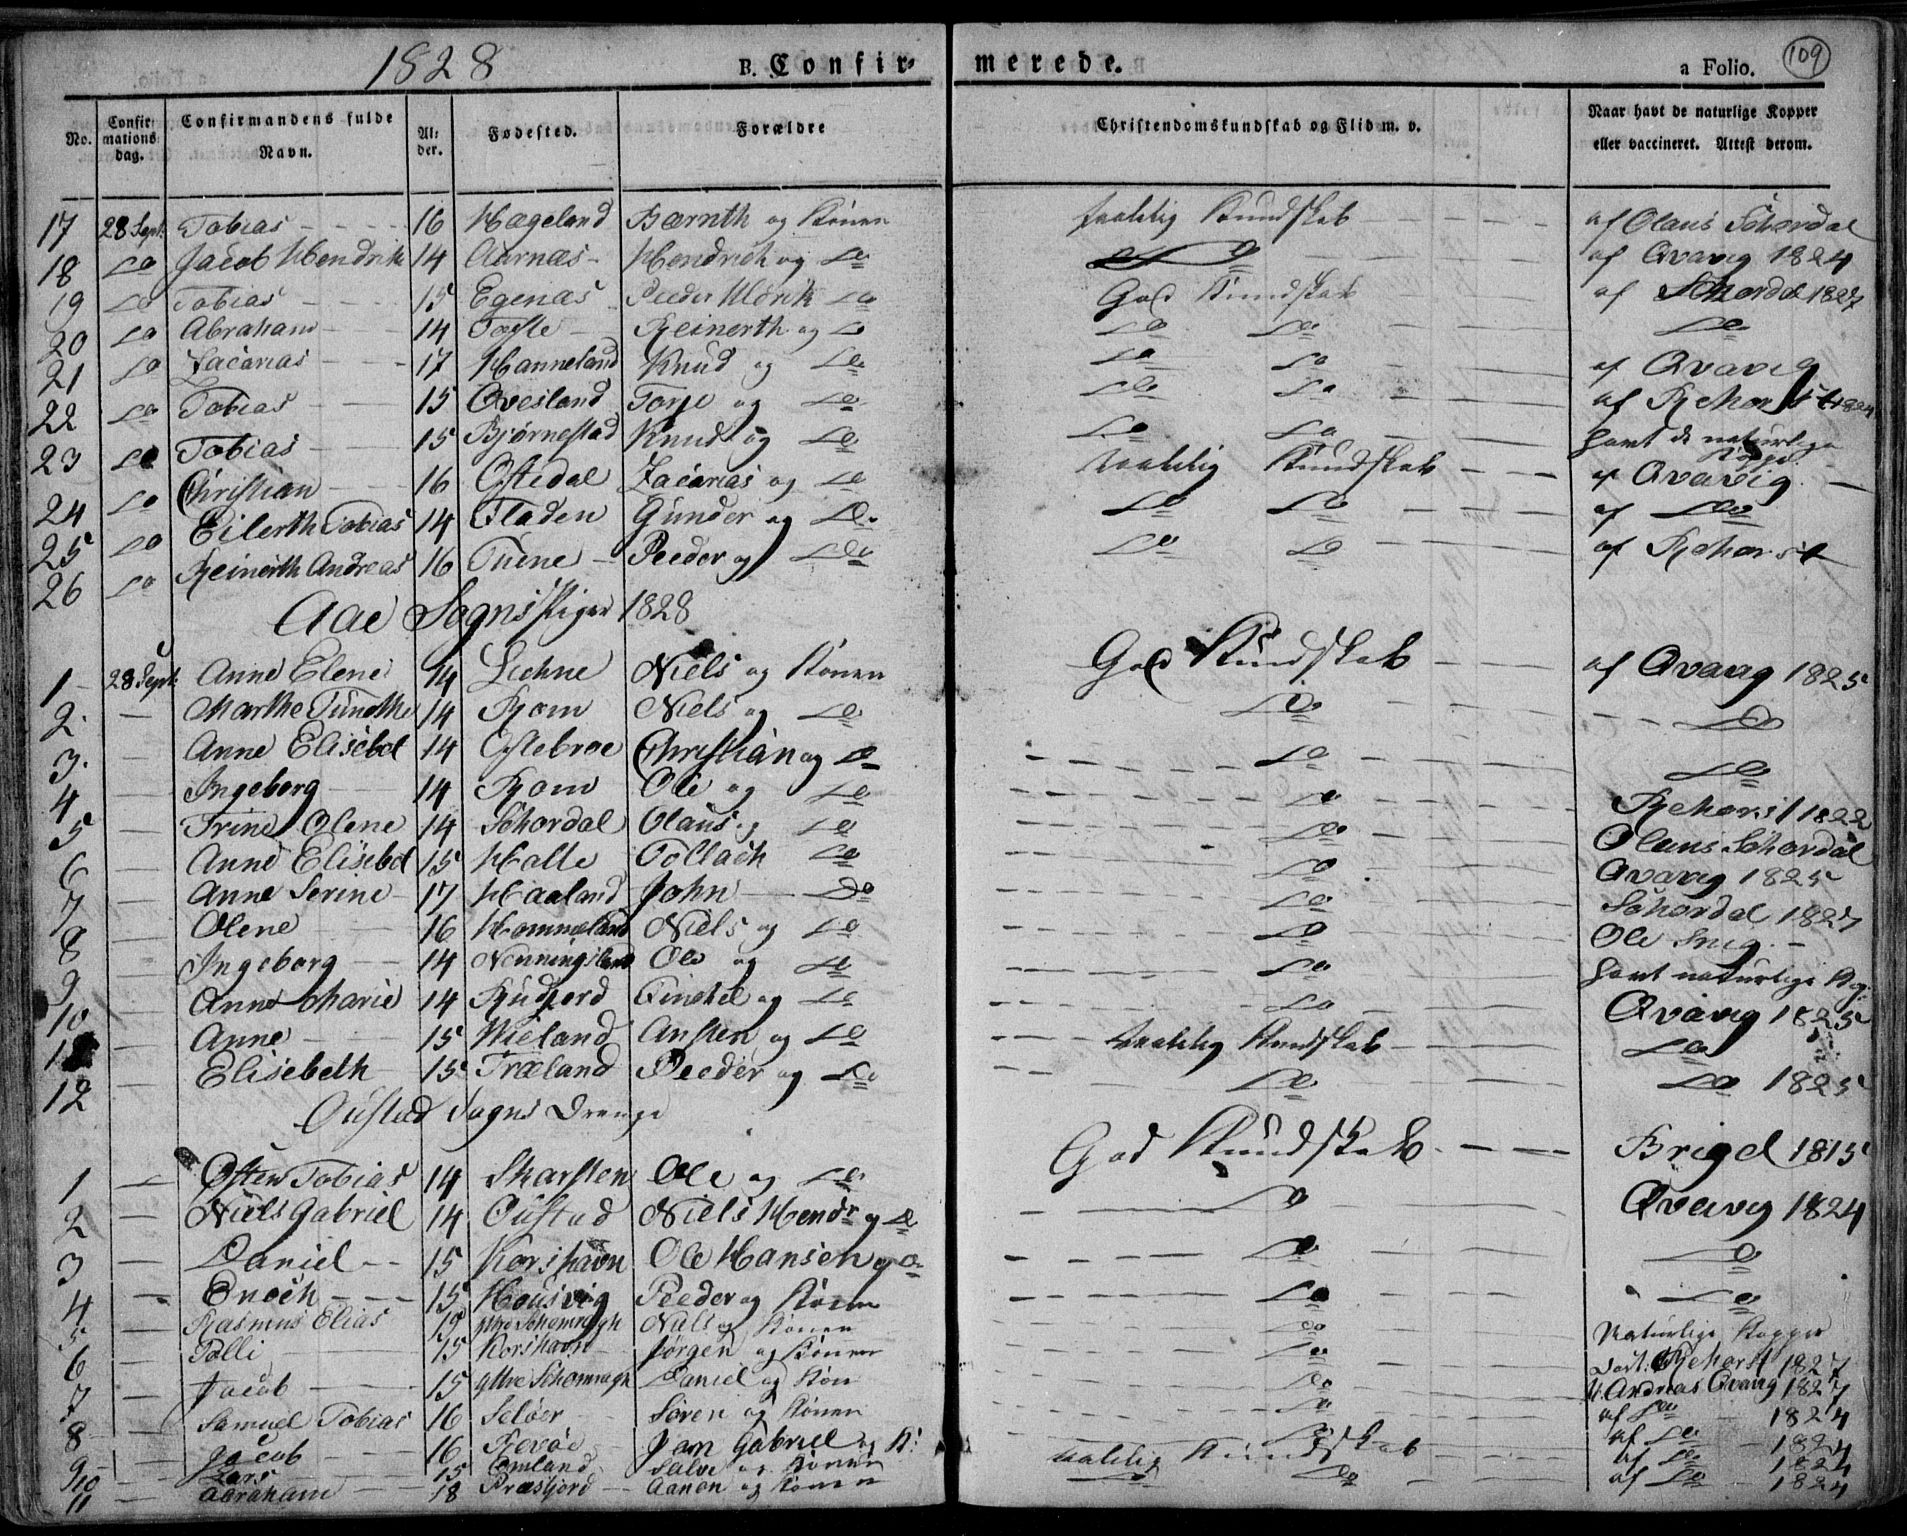 1828 B. Confir- merede. a Folio. 109
No. Confir- mations dag. Confirmandens fulde Navn. Al- der. Fødested. Forældre Christendomskundskab og Flid m. v. Naar havt de naturlige Kopper eller vaccineret. Attest derom.
17 28 Sept. Tobias 16 Hægeland Bærnth og Konen taalelig Kundskab af Olaus Schordal
18 do Jacob Hendrik 14 Aarnæs Hendrich og do do af Qvavig 1824
19 do Tobias 15 Egenæs Peeder Uldrik do God Kundskab af Schordal 1827
20 do Abraham 14 Reinerth og do do do do
21 do Zacarias 17 Hanneland Knud og do do do af Qvavig
22 do Tobias 15 Qvesland Torje og do do do af Rehorst 1824
23 do Tobias 15 Bjørnestad Knud og do do do havt de naturlige Kopper
24 do Christian 16 Ostedal Zacarias og do taalelig Kundskab af Qvavig
25 do Eilerth Tobias 14 Fladen Gunder og do do do af do
26 do Reinerth Andreas 16 Peeder og do do do af Rehorst
Aae Sogns Piger 1828
1 28 Sept. Anne Elene 14 Lechne Niels og Konen God Kundskab af Qvavig 1825
2 Marthe 14 Rom Niels og do do do
3 Anne Elisebet 14 Ostebroe Christian og do do do
4 Ingeborg 14 Rom Ole og do do Rehorst 1822
5 Trine Olene 14 Schordal Olaus og do do Olaus Schordal
6 Anne Elisebet 15 Halle Tollach do do Qvavig 1825
7 Anne Serine 17 Haaland John do do Schordal 1827
8 Olene 16 Hammeland Niels og do do Ole
9 Ingeborg 14 Nenningsland Ole og do do havt naturlige Kop.
10 Anne Marie 14 Rudjord Tinchel og do do Qvavig 1825
11 Anne 15 Wieland Ansten og do taalelig Kundskab do
12 Elisebeth 15 Træland Peeder og do do do 1825
Oustad Sogns Drenge
1 Osten Tobias 14 Skarsten Ole og do God Kundskab Brigel 1815
2 Niels Gabriel 14 Oustad Niels Hendr og do do Qvavig 1824
3 Daniel 15 Korshavn Ole Hansen og do do do
4 Enoch 15 Housvig Peeder og Konen do do
5 Rasmus Elias 15 Niels og Konen do Naturlige Kopper
6 Tolli 15 Korshavn Jørgen og Konen do Rehorst 1827
7 Jacob 15 Daniel og Kon do Andreas Qvavig 1827
8 Samuel Tobias 16 Seløer Søren og Konen do af do 1824
9 Jacob 16 Revøe Jan Gabriel og K: do af do 1824
10 Lars 15 Omland Salve og Konen taalelig Kundskab af do 1824
11 Abraham 18 Præstjord Aanen og Konen do do af do 1824